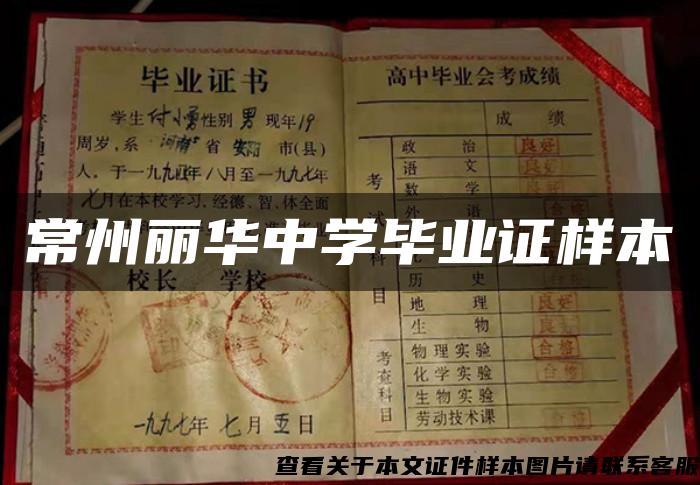 毕业证书
学生付小勇性别男现年19
周岁,系河南省安阳市(县)
人,于一九九四年八月至一九九七年
七月在本校学习,经德、智、体全面
校长 学校
一九九七年七月五日
高中毕业会考成绩
成绩
考试科目
政治 良好
语文 良好
数学
外语 合格
历史
地理 良好
生物 良好
考查科目
物理实验 合格
化学实验 合格
生物实验
劳动技术课 合格
常州丽华中学毕业证样本
查看关于本文证件样本图片请联系客服